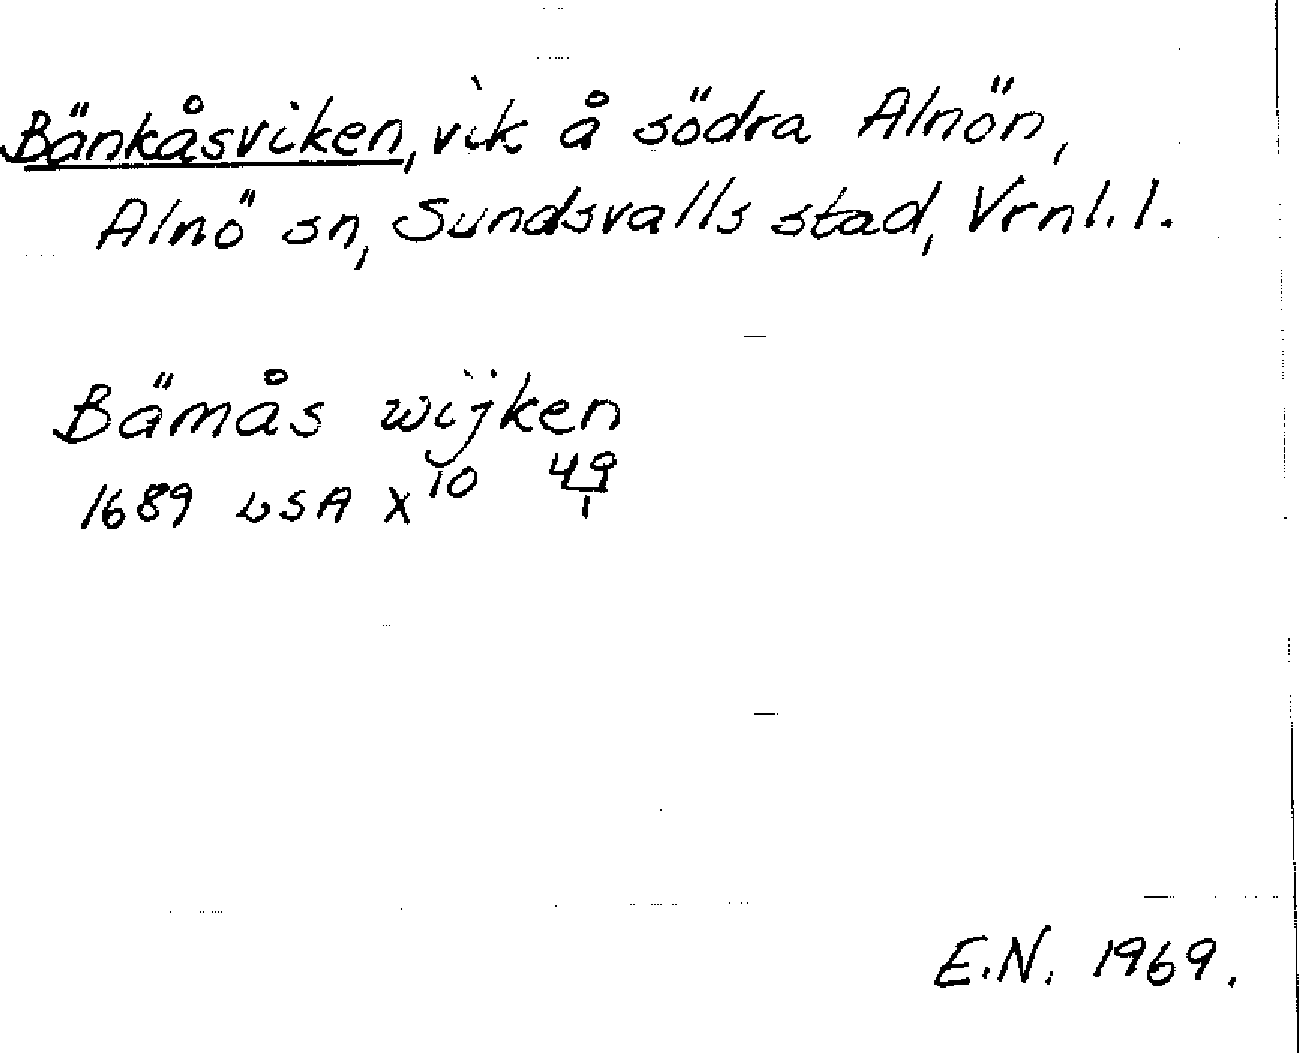 Bänkåsviken, vik å södra Alnön,
Alnö sn, Sundsvalls stad, Vrnl. l.
Bämås wijken
1689 LSA X10 49/1
E.N. 1969.